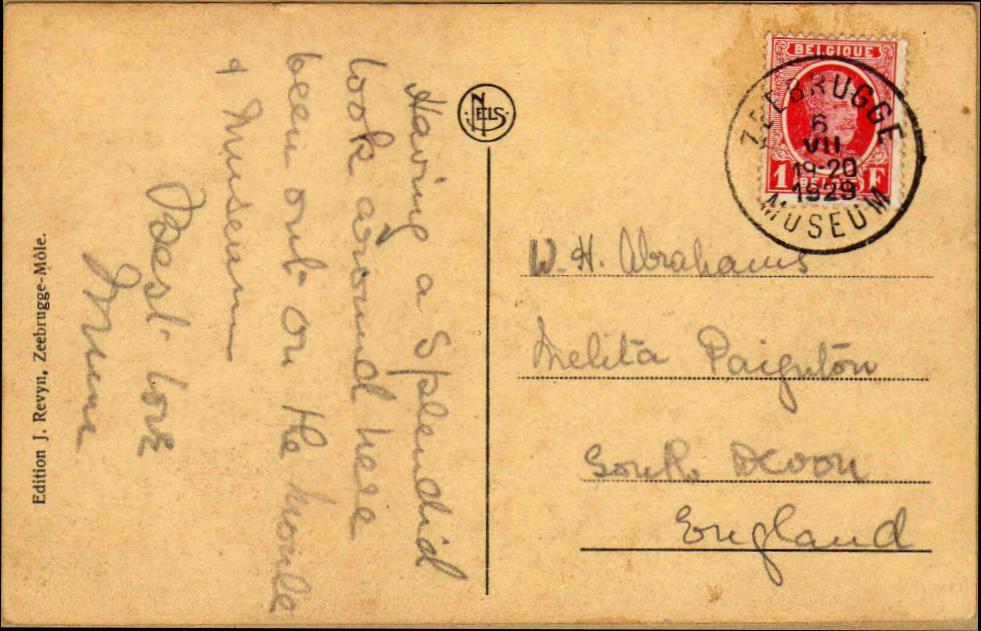 Having a splendid
look around here
been out on the moule
& Museum
Best love
Mum
NELS
Edition J. Revyn, Zeebrugge-Môle.
BELGIQUE
1 F
BELGIË
ZEEBRUGGE
6
VII
19-20
1929
MUSEUM
W. H. Abrahams
Melita Paignton
South Devon
England